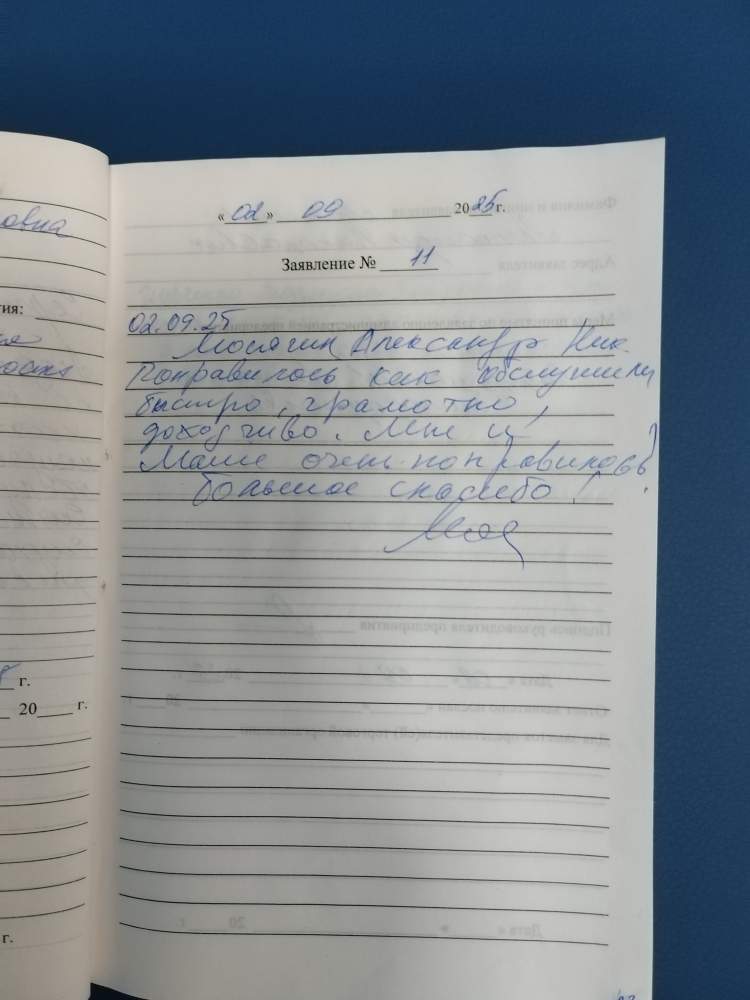 овна
тия:
г.
20 г.
г.
«02» 09 2025 г.
Заявление № 11
02.09.25
Мосягин Александр Ник.
Понравилось как обслужили
быстро, грамотно,
доходчиво. Мне и
Маме очень понравилось!
Большое спасибо!